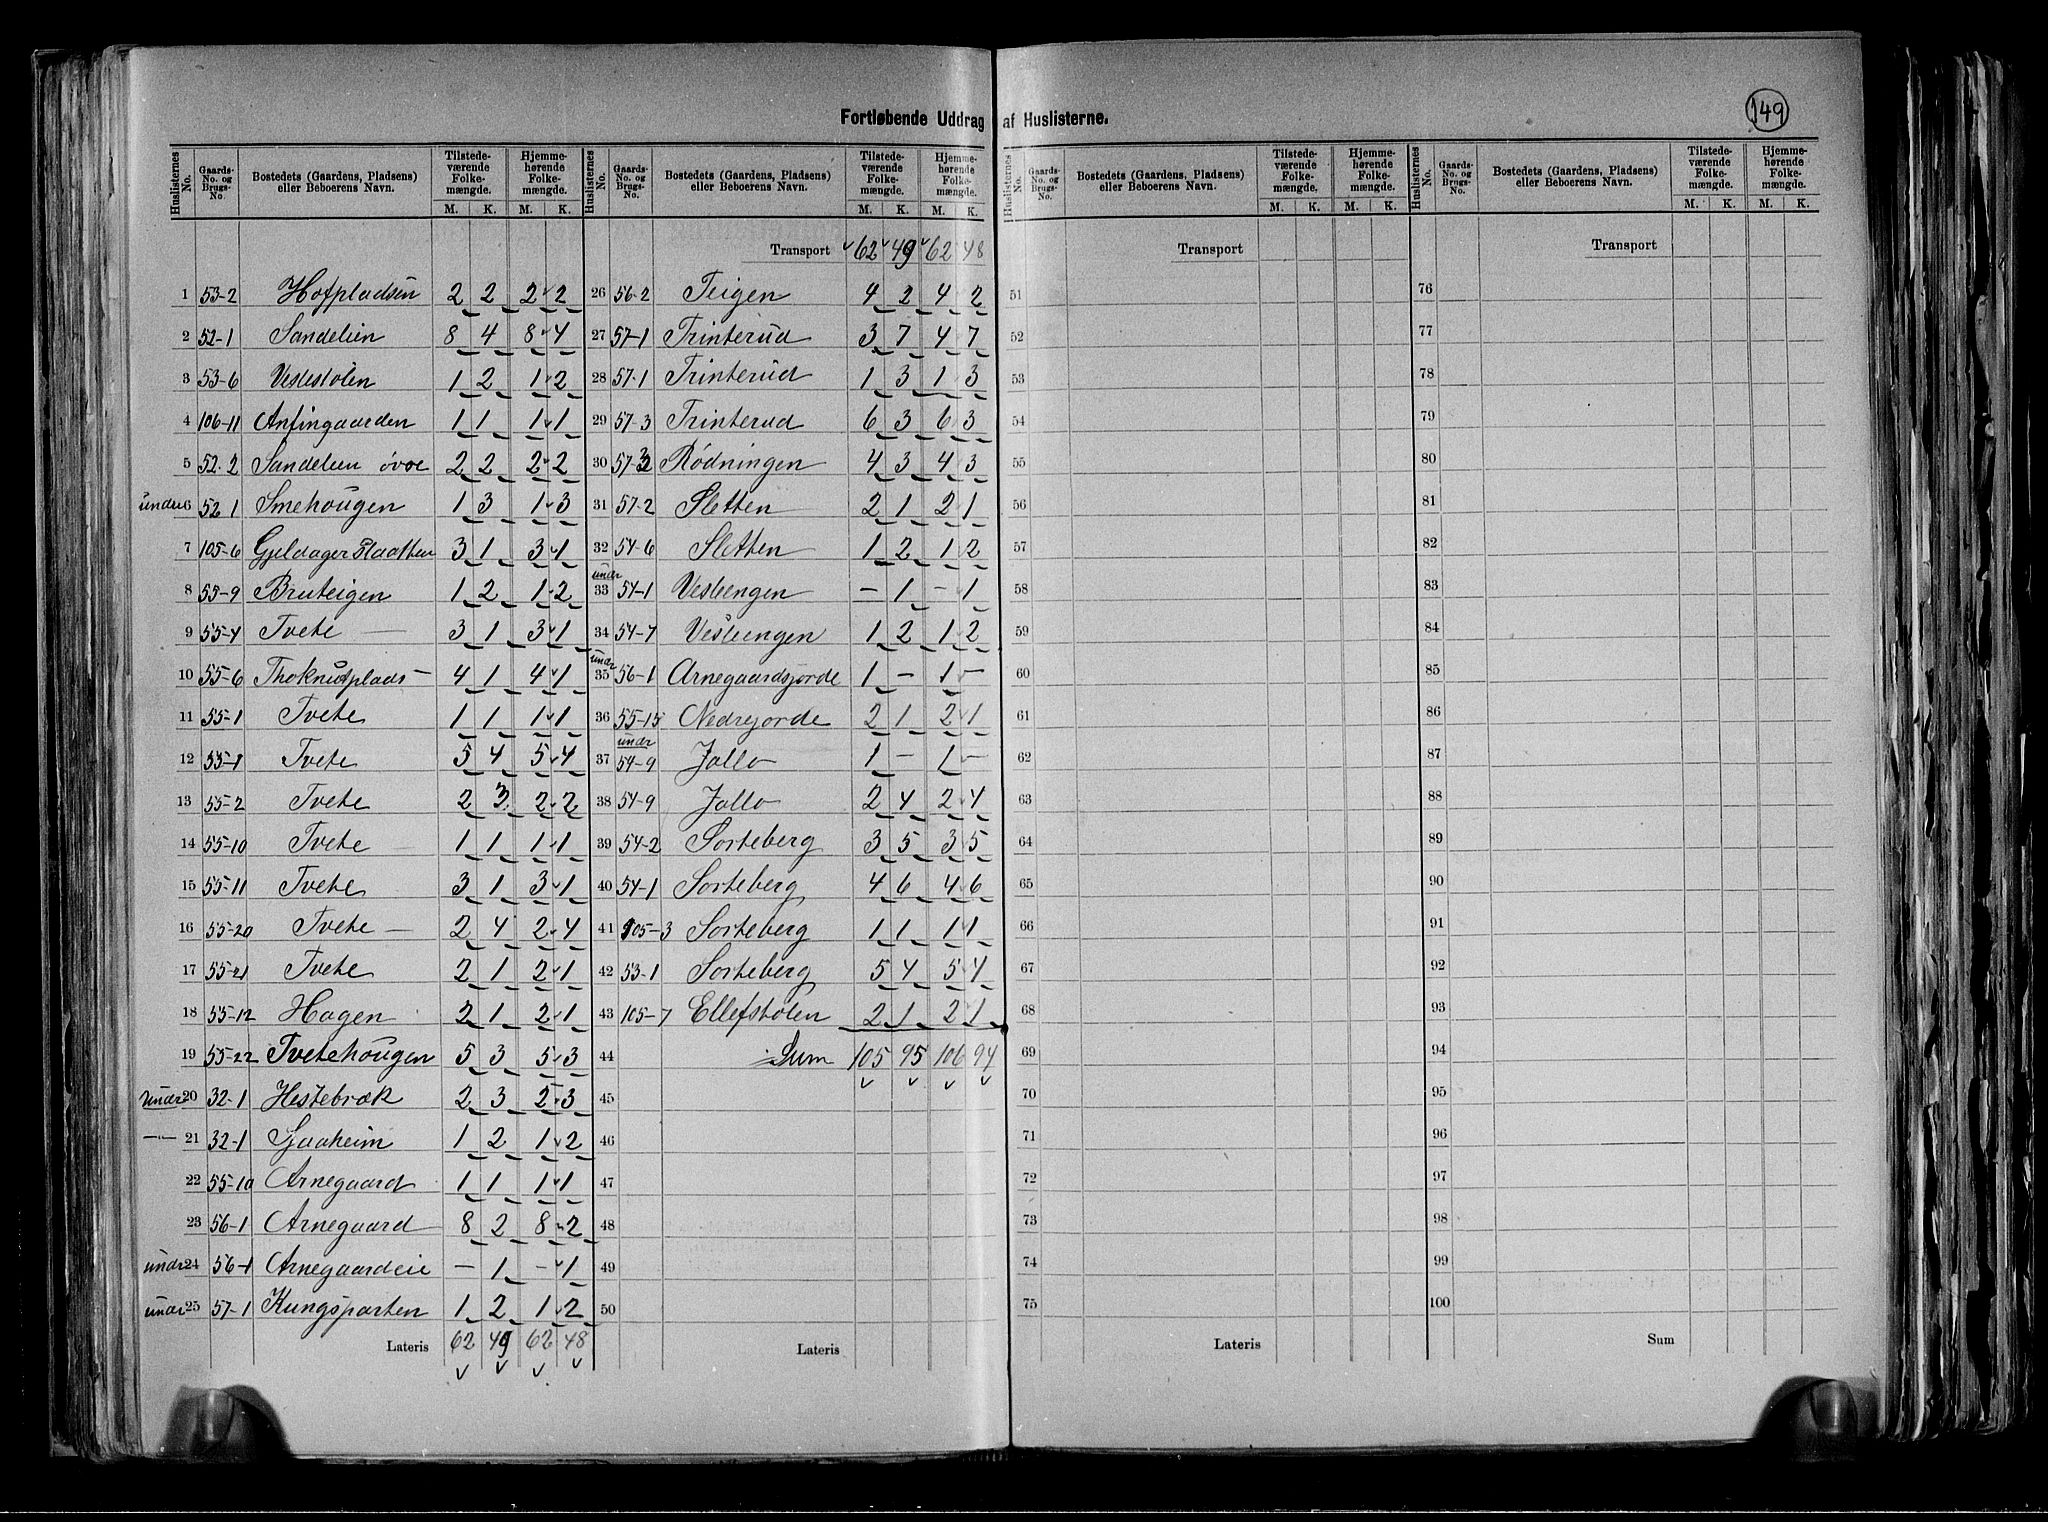 Fortløbende Uddrag af Huslisterne.
149
Huslisternes No. | Gaards-No. og Brugs-No. | Bostedets (Gaardens, Pladsens) eller Beboerens Navn. | Tilstedeværende Folkemængde. M. K. | Hjemmehørende Folkemængde. M. K.
1 53-2 Hofpladsen 2 2 2 2
2 52-1 Sandelien 8 4 8 4
3 53-6 Veslestølen 1 2 1 2
4 106-11 Anfingaarden 1 1 1 1
5 52-2 Sandelien øvre 2 2 2 2
under 6 52 1 Smehougen 1 3 1 3
7 105-6 Gjeldager Slaatten 3 1 3 1
8 55-9 Bruteigen 1 2 1 2
9 55-4 Tvete 3 1 3 1
10 55-6 Thoknutplads 4 1 4 1
11 55-1 Tvete 1 1 1 1
12 55-1 Tvete 5 4 5 4
13 55-2 Tvete 2 3 2 2
14 55-10 Tvete 1 1 1 1
15 55-11 Tvete 3 1 3 1
16 55-20 Tvete 2 4 2 4
17 55-21 Tvete 2 1 2 1
18 55-12 Hagen 2 1 2 1
19 55-22 Tvetehougen 5 3 5 3
under 20 32-1 Hestebræk 2 3 2 3
-"- 21 32-1 Gaaheim 1 2 1 2
22 55-10 Arnegaard 1 1 1 1
23 56-1 Arnegaard 8 2 8 2
under 24 56-1 Arnegaardeie - 1 - 1
under 25 57-1 Kungsparten 1 2 1 2
Lateris 62 49 62 48
Huslisternes No. | Gaards-No. og Brugs-No. | Bostedets (Gaardens, Pladsens) eller Beboerens Navn. | Tilstedeværende Folkemængde. M. K. | Hjemmehørende Folkemængde. M. K.
Transport 62 49 62 48
26 56-2 Teigen 4 2 4 2
27 57-1 Trinterud 3 7 4 7
28 57-1 Trinterud 1 3 1 3
29 57-3 Trinterud 6 3 6 3
30 57-2 Rødningen 4 3 4 3
31 57-2 Sletten 2 1 2 1
32 54-6 Sletten 1 2 1 2
under 33 54-1 Veslengen - 1 - 1
34 54-7 Veslengen 1 2 1 2
under 35 56-1 Arnegaardsjorde 1 - 1 -
36 55-15 Nedrejorde 2 1 2 1
under 37 54-9 Jallo 1 - 1 -
38 54-9 Jallo 2 4 2 4
39 54-2 Sorteberg 3 5 3 5
40 54-1 Sorteberg 4 6 4 6
41 105-3 Sorteberg 1 1 1 1
42 53-1 Sorteberg 5 4 5 4
43 105-7 Ellefstølen 2 1 2 1
44 Sum 105 95 106 94
45
46
47
48
49
50
Lateris
Huslisternes No. | Gaards-No. og Brugs-No. | Bostedets (Gaardens, Pladsens) eller Beboerens Navn. | Tilstedeværende Folkemængde. M. K. | Hjemmehørende Folkemængde. M. K.
Transport
51
52
53
54
55
56
57
58
59
60
61
62
63
64
65
66
67
68
69
70
71
72
73
74
75
Lateris
Huslisternes No. | Gaards-No. og Brugs-No. | Bostedets (Gaardens, Pladsens) eller Beboerens Navn. | Tilstedeværende Folkemængde. M. K. | Hjemmehørende Folkemængde. M. K.
Transport
76
77
78
79
80
81
82
83
84
85
86
87
88
89
90
91
92
93
94
95
96
97
98
99
100
Sum